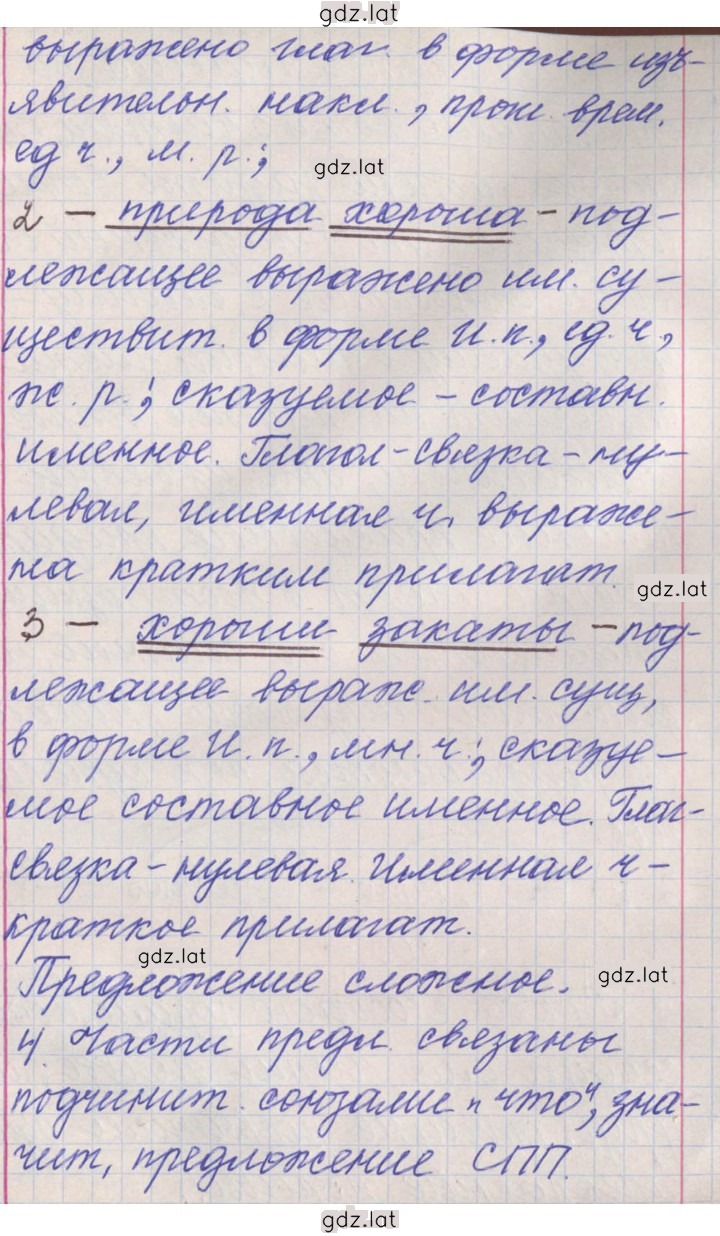 gdz.lat
выражено глаг. в форме изъ-
явительн. накл., прош. врем.
ед ч., м. р.;
gdz.lat
2 - природа хороша - под-
лежащее выражено им. су-
ществит. в форме И.п., ед. ч,
ж. р.; сказуемое - составн.
именное. Глагол-связка - ну-
левая, именная ч. выраже-
на кратким прилагат.
gdz.lat
3 - хороши закаты - под-
лежащее выраж. им. сущ,
в форме И. п., мн. ч.; сказуе-
мое составное именное. Глаг-
связка - нулевая. Именная ч -
краткое прилагат.
gdz.lat
Предложение сложное.
gdz.lat
4) Части предл. связаны
подчинит. союзами "что", зна-
чит, предложение СПП.
gdz.lat